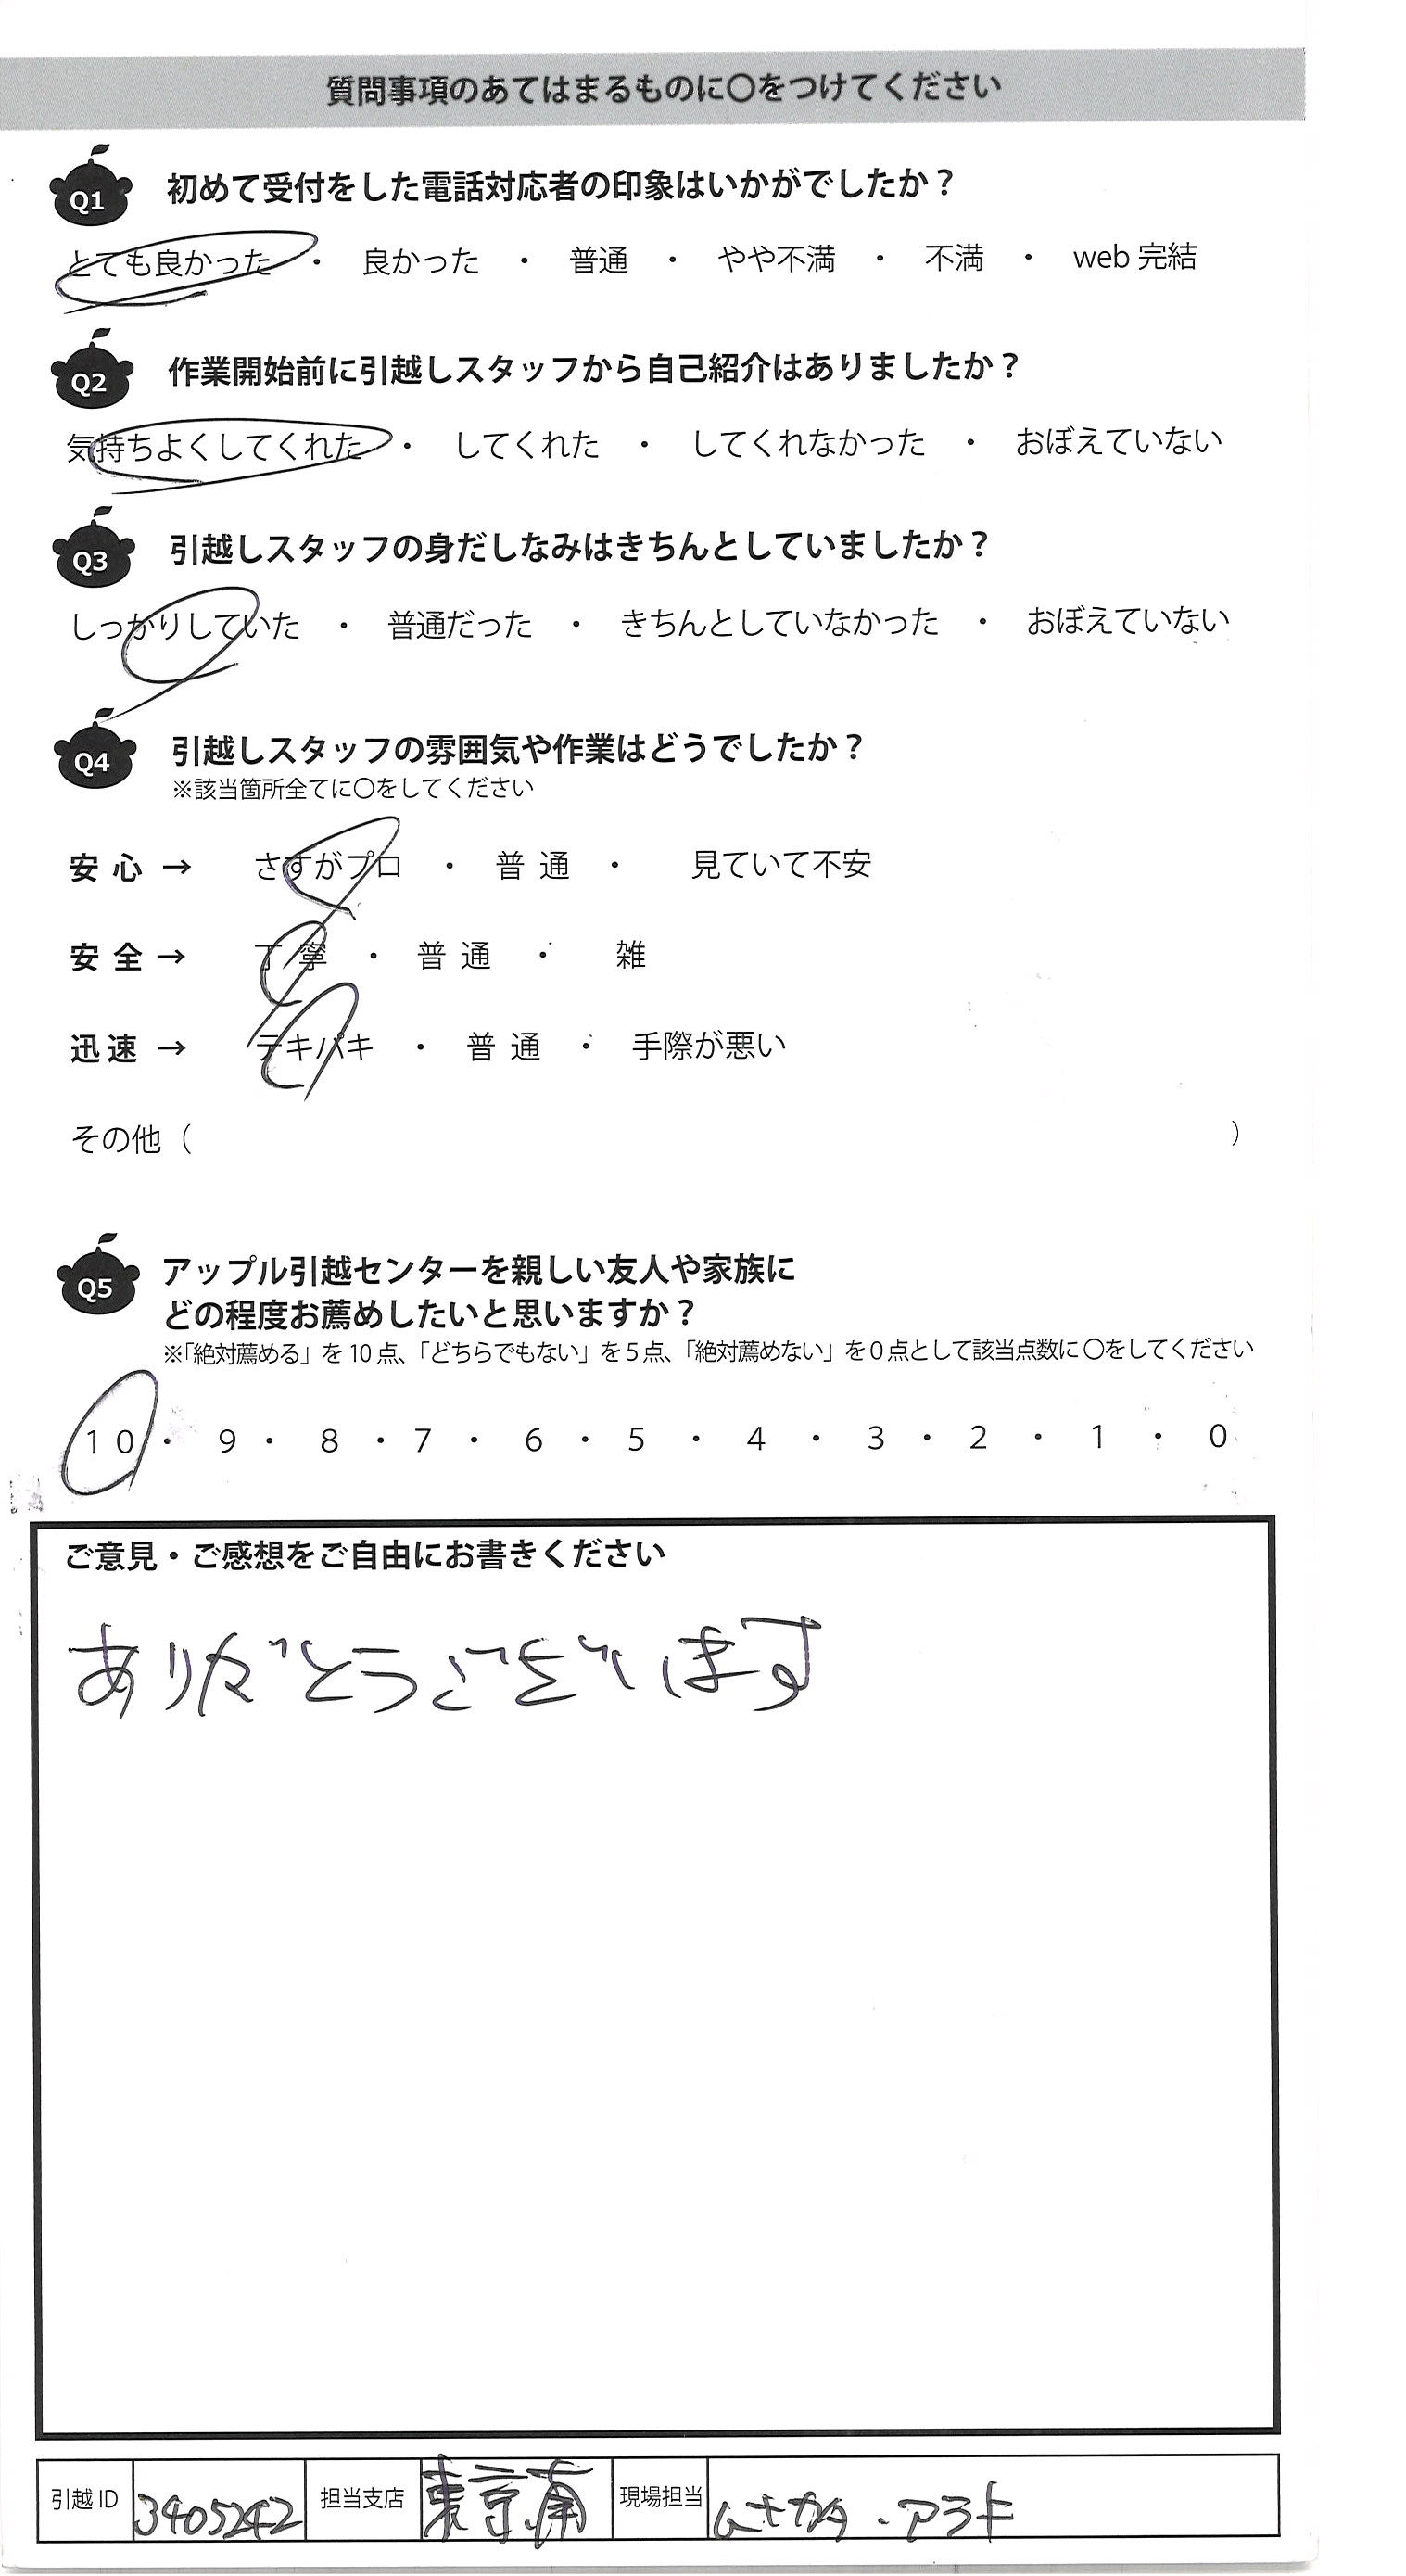 質問事項のあてはまるものに〇をつけてください
Q1 初めて受付をした電話対応者の印象はいかがでしたか？
とても良かった ・ 良かった ・ 普通 ・ やや不満 ・ 不満 ・ web 完結
Q2 作業開始前に引越しスタッフから自己紹介はありましたか？
気持ちよくしてくれた ・ してくれた ・ してくれなかった ・ おぼえていない
Q3 引越しスタッフの身だしなみはきちんとしていましたか？
しっかりしていた ・ 普通だった ・ きちんとしていなかった ・ おぼえていない
Q4 引越しスタッフの雰囲気や作業はどうでしたか？
※該当箇所全てに〇をしてください
安心 → さすがプロ ・ 普通 ・ 見ていて不安
安全 → 丁寧 ・ 普通 ・ 雑
迅速 → テキパキ ・ 普通 ・ 手際が悪い
その他（ ）
Q5 アップル引越センターを親しい友人や家族に
どの程度お薦めしたいと思いますか？
※「絶対薦める」を 10 点、「どちらでもない」を 5 点、「絶対薦めない」を 0 点として該当点数に 〇をしてください
10 ・ 9 ・ 8 ・ 7 ・ 6 ・ 5 ・ 4 ・ 3 ・ 2 ・ 1 ・ 0
ご意見・ご感想をご自由にお書きください
ありがとうございます
引越 ID 3405242 担当支店 東京南 現場担当 ・アラキ